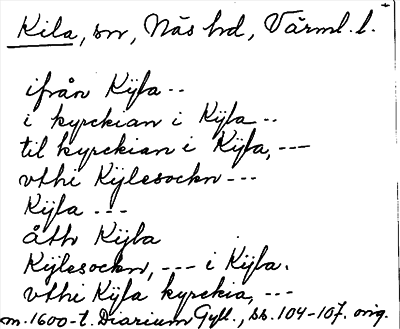 Kila, sn, Näs hd, Värml. l.
ifrån Kÿla --
i kyrckian i Kÿla --
til kyrckian i Kÿla, ---
vthi Kÿlesockn ---
Kÿla ---
åth Kÿla
Kÿlesockn, --- i Kÿla.
vthi Kÿla kyrckia, ---
m. 1600-t. Diarium Gyll., ss. 104-107. orig.